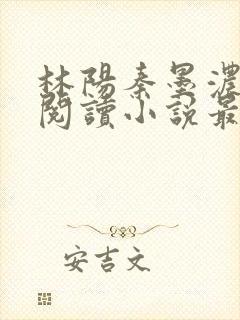 林陽秦墨濃
閱讀小說最
安吉文